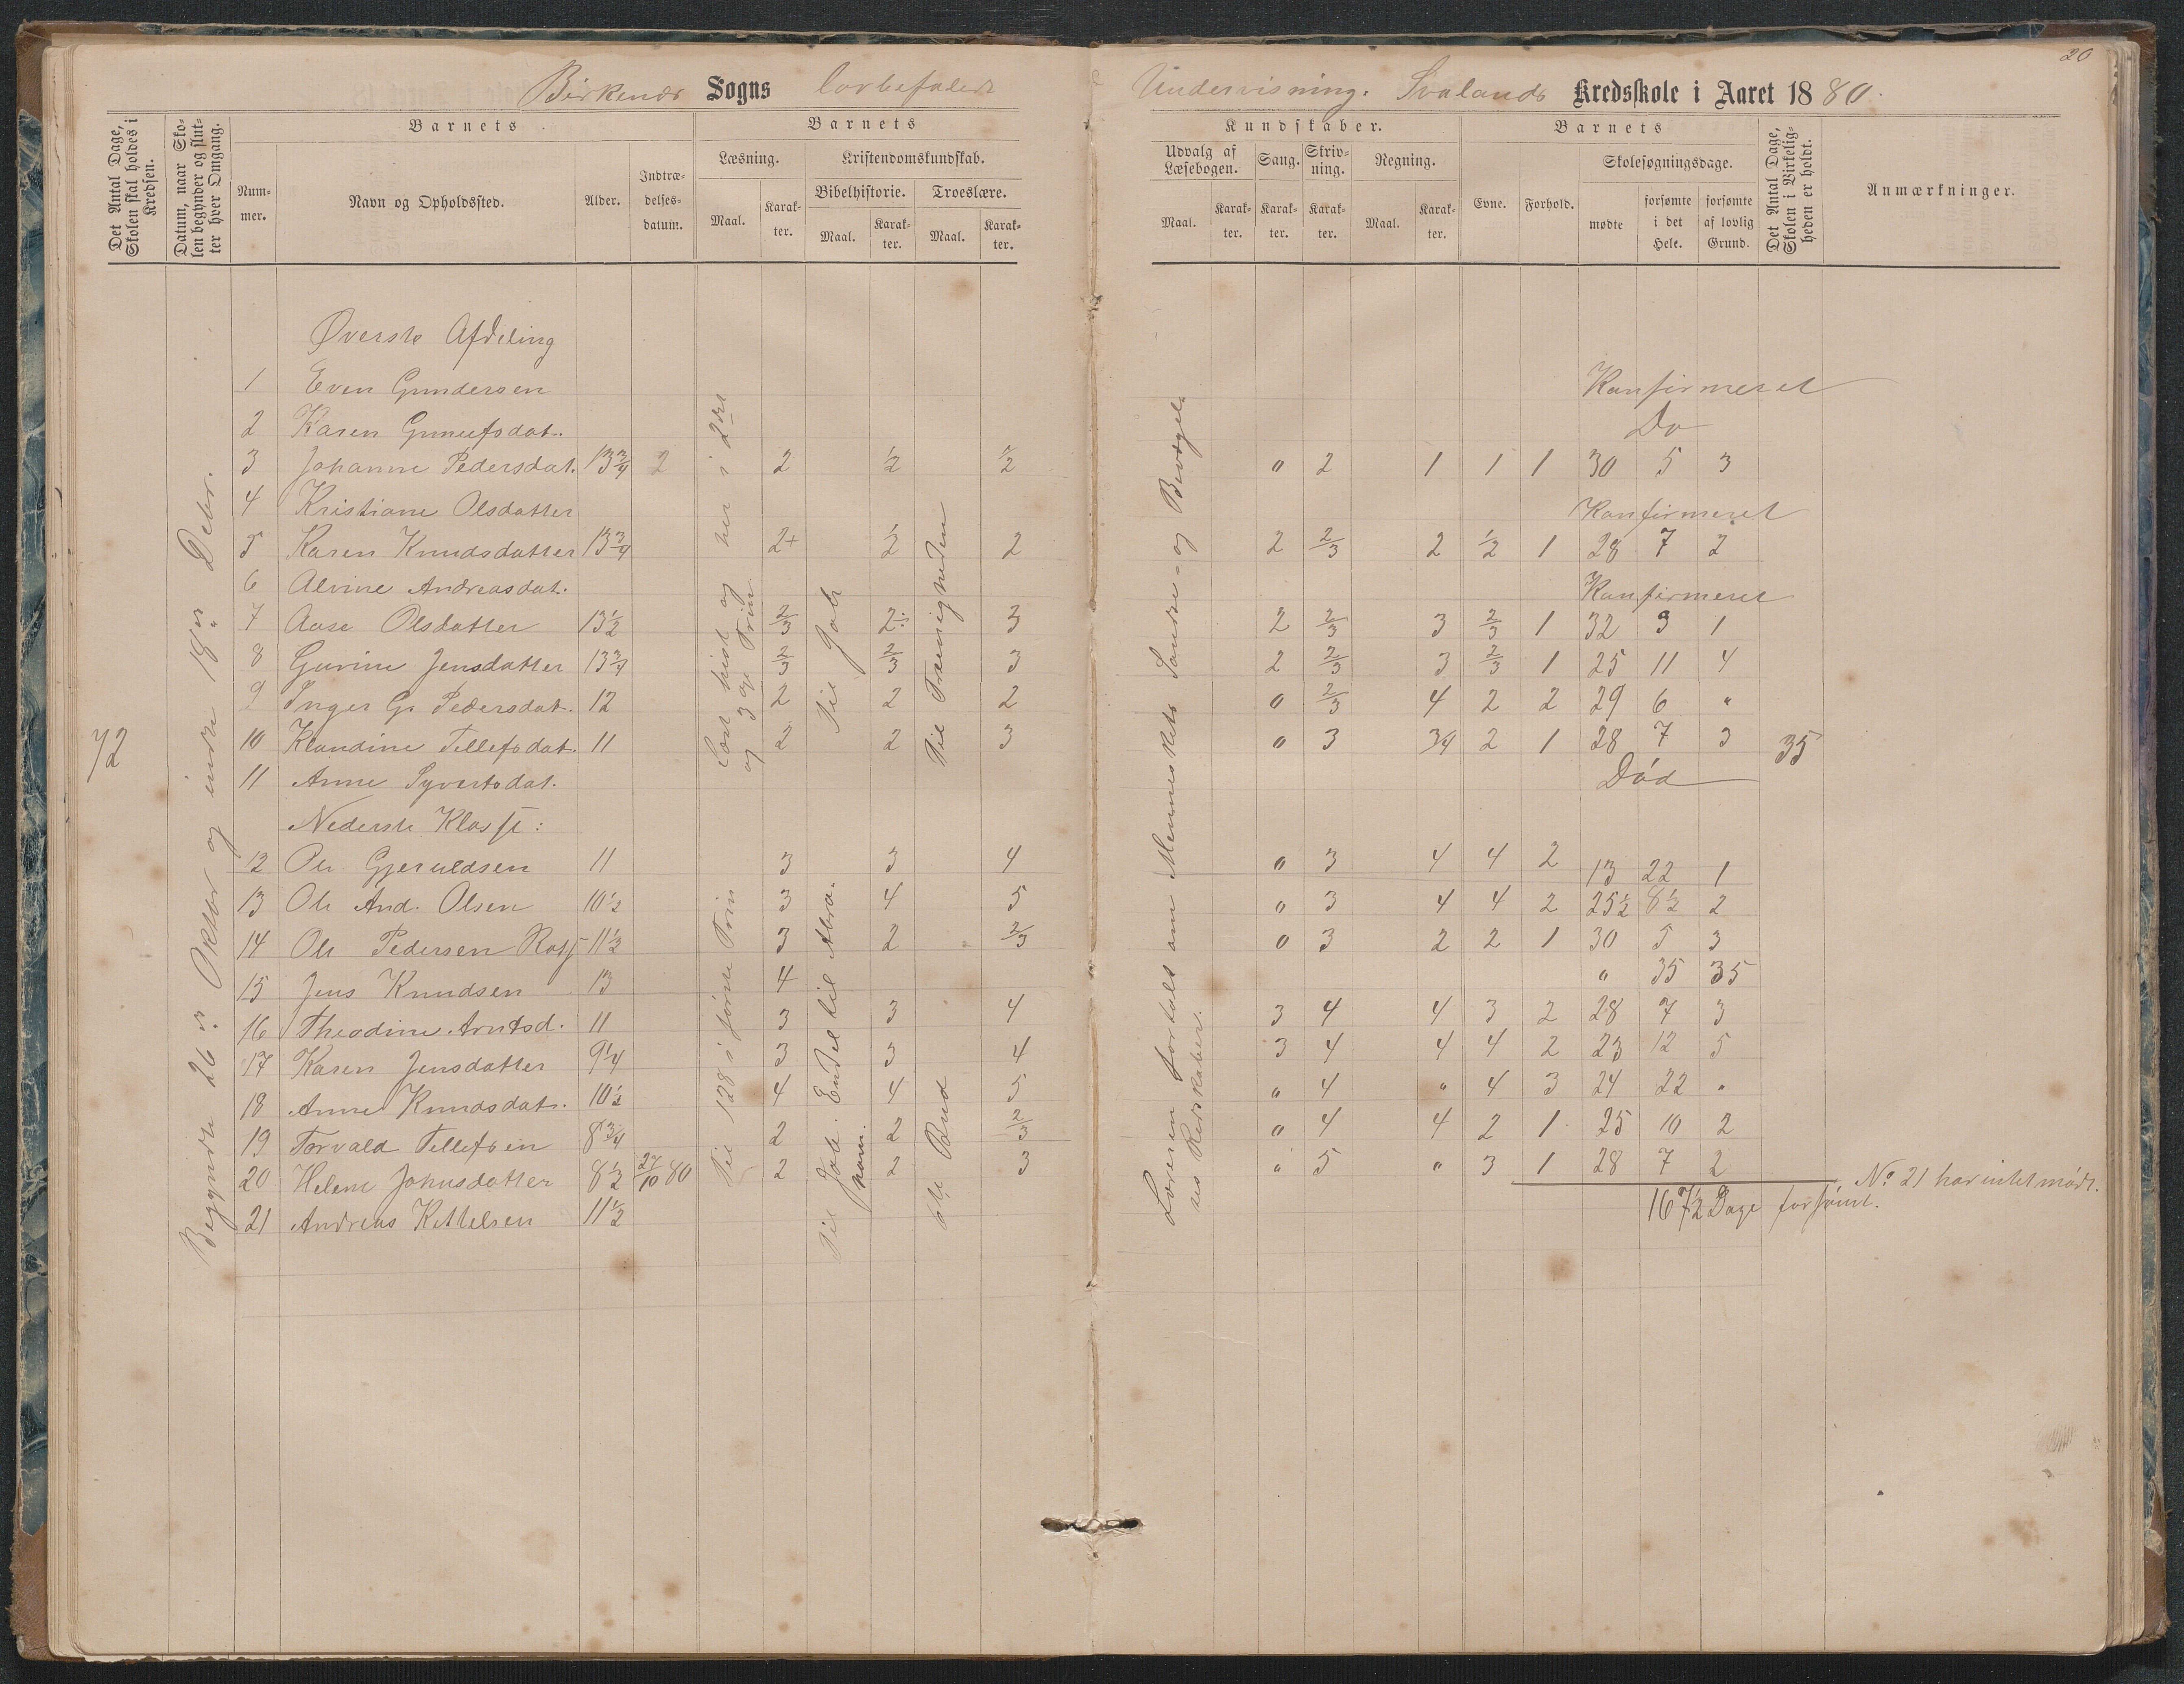 20
Birkenæs Sogns lovbefalede Undervisning. Svalands Kredsskole i Aaret 1880.
Det Antal Dage, Skolen skal holdes i Kredsen.
Datum, naar Skolen begynder og slutter hver Omgang.
Barnets
Nummer.
Navn og Opholdssted.
Alder.
Indtrædelsesdatum.
Barnets
Læsning.
Maal.
Karakter.
Kristendomskundskab.
Bibelhistorie.
Maal.
Karakter.
Troeslære.
Maal.
Karakter.
Kundskaber.
Udvalg af Læsebogen.
Maal.
Karakter.
Sang.
Karakter.
Skrivning.
Karakter.
Regning.
Maal.
Karakter.
Barnets
Evne.
Forhold.
Skolesøgningsdage.
mødte
forsømte i det Hele.
forsømte af lovlig Grund.
Det Antal Dage, Skolen i Virkeligheden er holdt.
Anmærkninger.
72
Begyndte 26de Oktbr og endte 18de Debr.
Øverste Afdeling
1 Even Gundersen Konfirmeret
2 Karen Gunulfsdat. Do
3 Johanne Pedersdat. 13 3/4 2 2 1/2 1/2 " 2 1 1 1 30 5 3
4 Kristiane Olsdatter Konfirmeret
5 Karen Knudsdatter 13 3/4 2+ 1/2 2 2 2/3 2 1/2 1 28 7 2
6 Alvine Andreasdat. Konfirmeret
7 Aase Olsdatter 13 1/2 2/3 2÷ 3 2 2/3 3 2/3 1 32 3 1
8 Gurine Jensdatter 13 3/4 2/3 2/3 3 2 2/3 3 2/3 1 25 11 4
9 Inger G. Pedersdat. 12 2 2 2 0 2/3 4 2 2 29 6 "
10 Klaudine Tellefsdat. 11 2 2 3 0 3 34 2 1 28 7 3 35
11 Anne Syvertsdat. Død
Nederste Klasse:
12 Ole Gjeruldsen 11 3 3 4 0 3 4 4 2 13 22 1
13 Ole And. Olsen 10 1/2 3 4 5 0 3 4 4 2 25 1/2 8 1/2 2
14 Ole Pedersen Ross 11 1/2 3 2 2/3 0 3 2 2 1 30 5 3
15 Jens Knudsen 13 4 " 35 35
16 Theodine Arntsd. 11 3 3 4 3 4 4 3 2 28 7 3
17 Karen Jensdatter 9 1/4 3 3 4 3 4 4 4 2 23 12 5
18 Anne Knudsdat. 10 1/2 4 4 5 " 4 " 4 3 24 22 "
19 Torvald Tellefsen 8 3/4 2 2 2/3 0 4 4 2 1 25 10 2
20 Helene Johnsdatter 8 1/2 27/10 80 2 2 3 " 5 " 3 1 28 7 2
21 Andreas Kittelsen 11 1/2
No 21 har intet mødt.
167 1/2 Dage forsømt.
Læst hist og her i 2det og 3die Trin.
Til Job
Til Treenigheden
Til 128 i første Trin
Til Job. Endel til Abraham.
6te Bud
Læreren fortalt om Menneskets Sandse- og Bevægelsesredskaber.